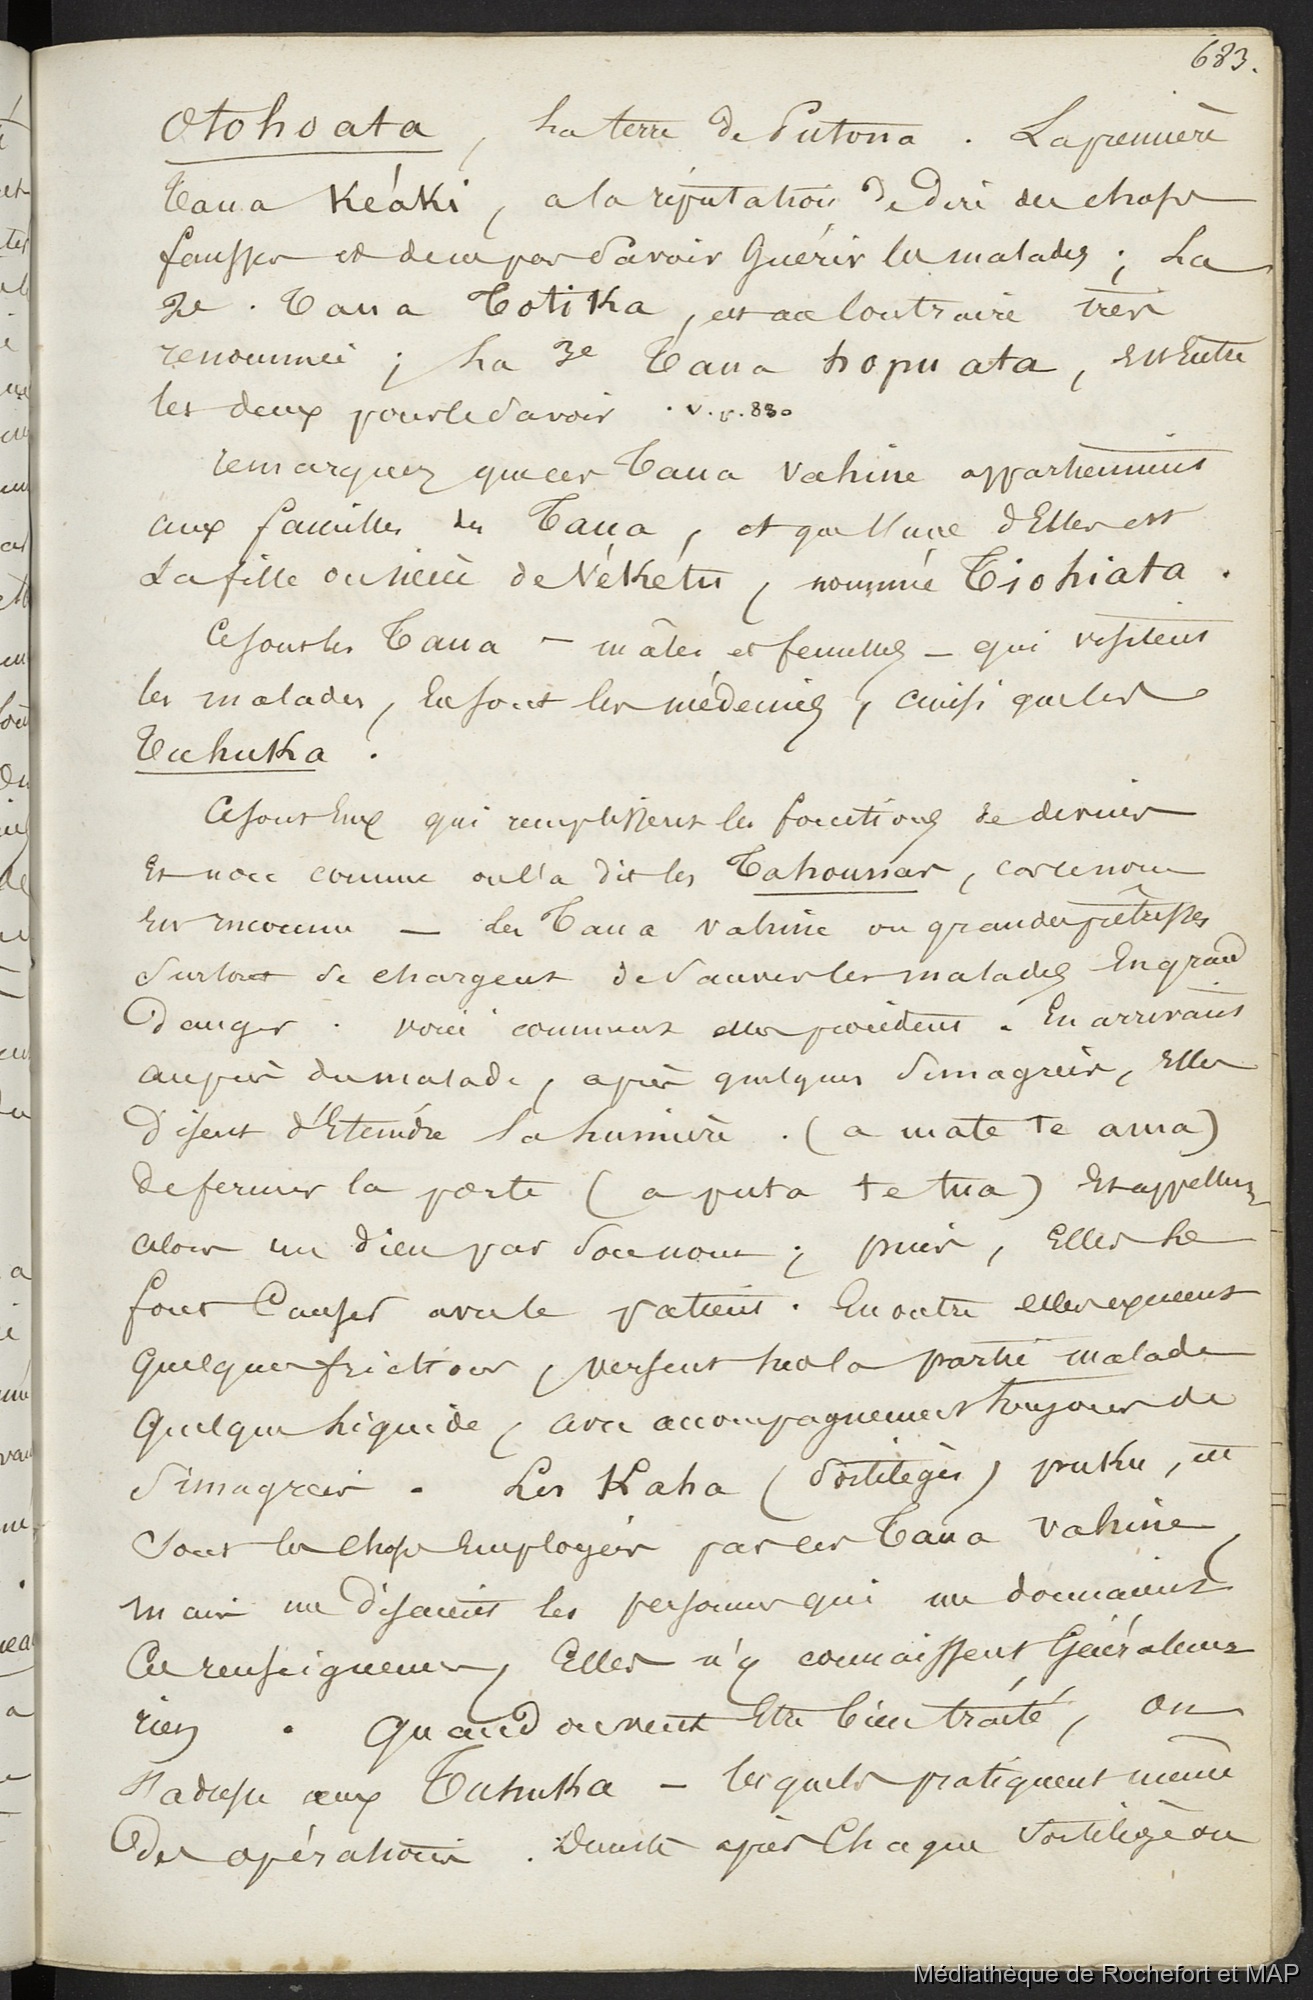 683.
Otohoata, la terre de Putona. La première
Taua Keáki, a la réputation de dire des choses
fausses et de ne pas savoir guérir les malades; La
2e. Taua Totika, est au contraire très
renommée; La 3e Taua hopuata, est entre
les deux pour le savoir. v. p. 830
remarquez que ces Taua vahine appartiennent
aux familles des Taua, et que l'une d'Elles est
La fille ou nièce de Nékétu, nommée Tiohiata.
Ce sont les Taua – mâles et femelles – qui visitent
les malades, En sont les médecins, ainsi que les
Tuhuka.
Ce sont Eux qui remplissent les fonctions de devins
Et non comme on l'a dit les Tahounas, car ce nom
Est inconnu — Les Taua vahine ou grandes prêtresses
surtout se chargent de sauver les malades En grand
Danger. voici comment elles procèdent. En arrivant
auprès du malade, après quelques simagrées, Elles
Disent d'Eteindre la lumière. (a mate te ama)
De fermer la porte (a puta te tua) Et appellent
alors un dieu par son nom; puis, Elles le
font Causer avec le patient. En outre elles exercent
quelques frictions, versent sur la partie malade
quelque liquide, avec accompagnement toujours de
simagrées. Les Kaha (sortilèges) puku, etc
sont les choses Employées par les Taua vahine,
mais me disaient les personnes qui me donnaient
Ces renseignemens, Elles n'y connaissent Généralement
rien. Quand on veut Etre bien traité, on
s'adresse aux Tuhuka – lesquels pratiquent même
Des opérations. Ensuite après Chaque sortilège ou
Médiathèque de Rochefort et MAP